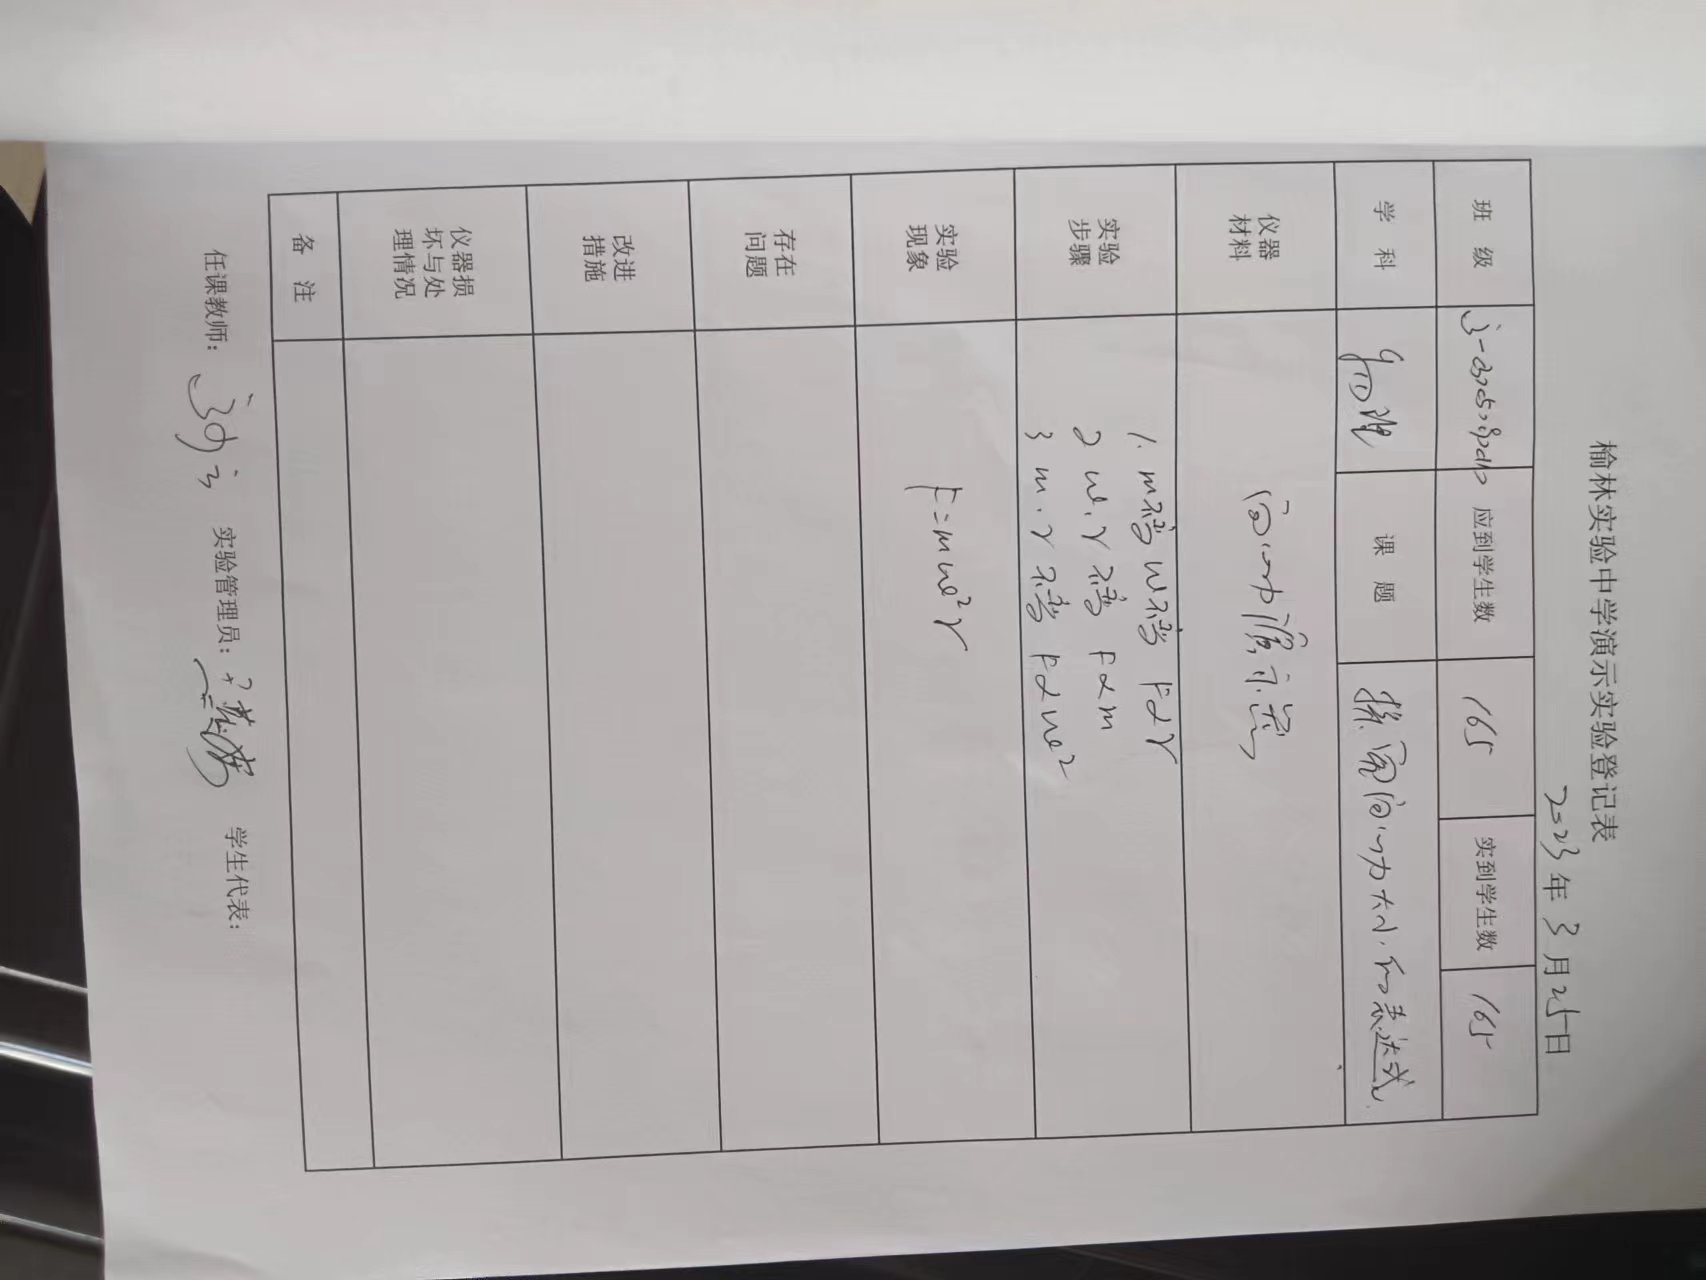 榆林实验中学演示实验登记表
2023年3月25日
班 级 应到学生数 165 实到学生数 165
学 科 物理 课 题 探究向心力大小的表达式
仪器材料 向心力演示器
实验步骤
1. m不变 w不变 F∝r
2 w、r不变 F∝m
3 m、r不变 F∝w²
实验现象 F=mw²r
存在问题
改进措施
仪器损坏与处理情况
备 注
任课教师： 实验管理员： 学生代表：